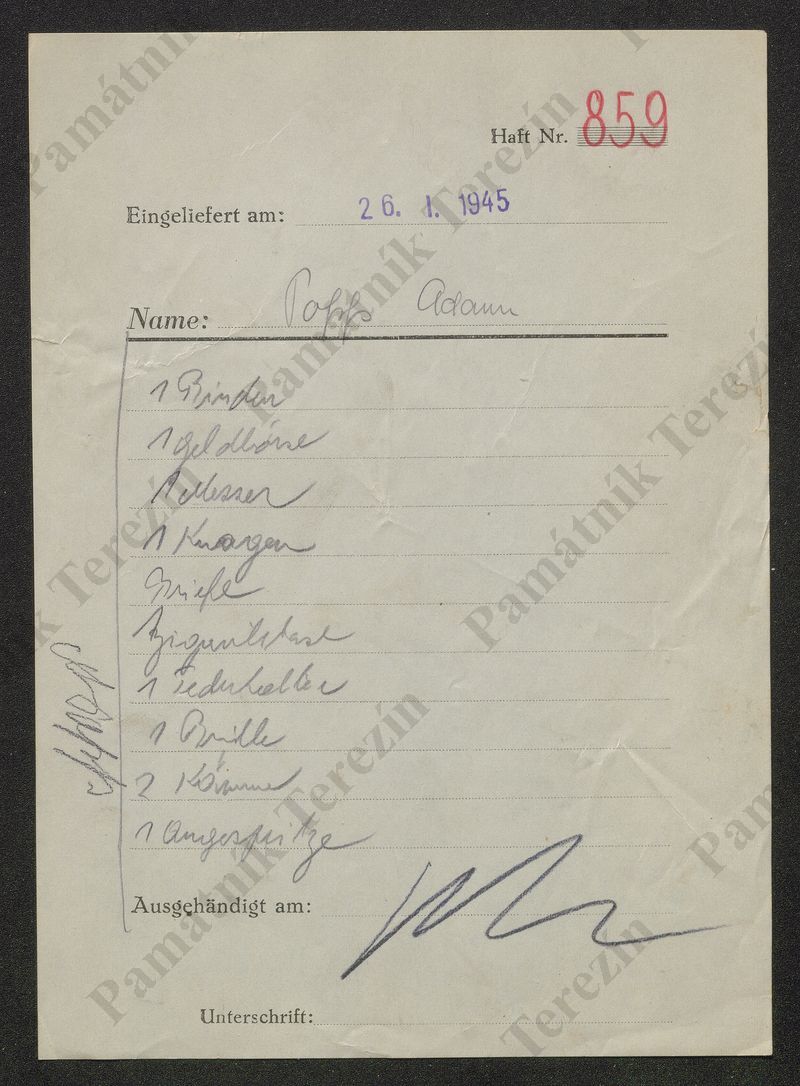 Haft Nr. 859
Eingeliefert am: 26. I. 1945
Name: Adam
1 Binder
1 Geldbörse
1 Messer
1 Kragen
Briefe
1 Federhalter
1 Brille
2 Kämme
Ausgehändigt am:
Unterschrift:
Památník Terezín